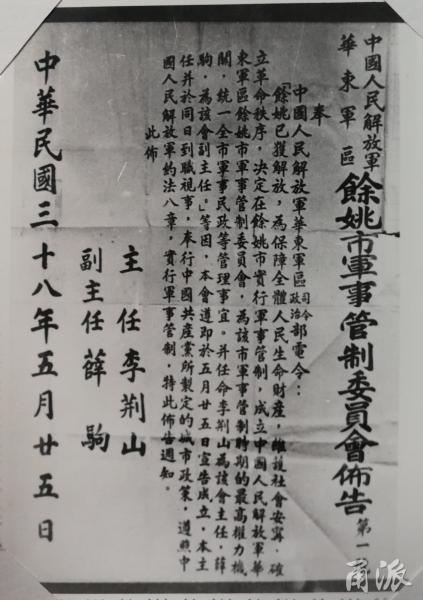 中國人民解放軍
華東軍區
餘姚市軍事管制委員會佈告 第一
奉
中國人民解放軍華東軍區司令政治部電令：
「餘姚已獲解放，為保障全體人民生命財產，維護社會安寧，確
立革命秩序，決定在餘姚市實行軍事管制，成立中國人民解放軍華
東軍區餘姚市軍事管制委員會，為該市軍事管制時期的最高權力機
關，統一全市軍事民政等管理事宜。并任命李荆山為該會主任，薛
駒，為該會副主任。」等因，本會遵即於五月廿五日宣告成立，本主
任并於同日到職視事，奉行中國共產黨所製定的城市政策，遵照中
國人民解放軍約法八章，實行軍事管制，特此佈告通知。
此佈
主任 李荆山
副主任 薛駒
中華民國三十八年五月廿五日
甬派